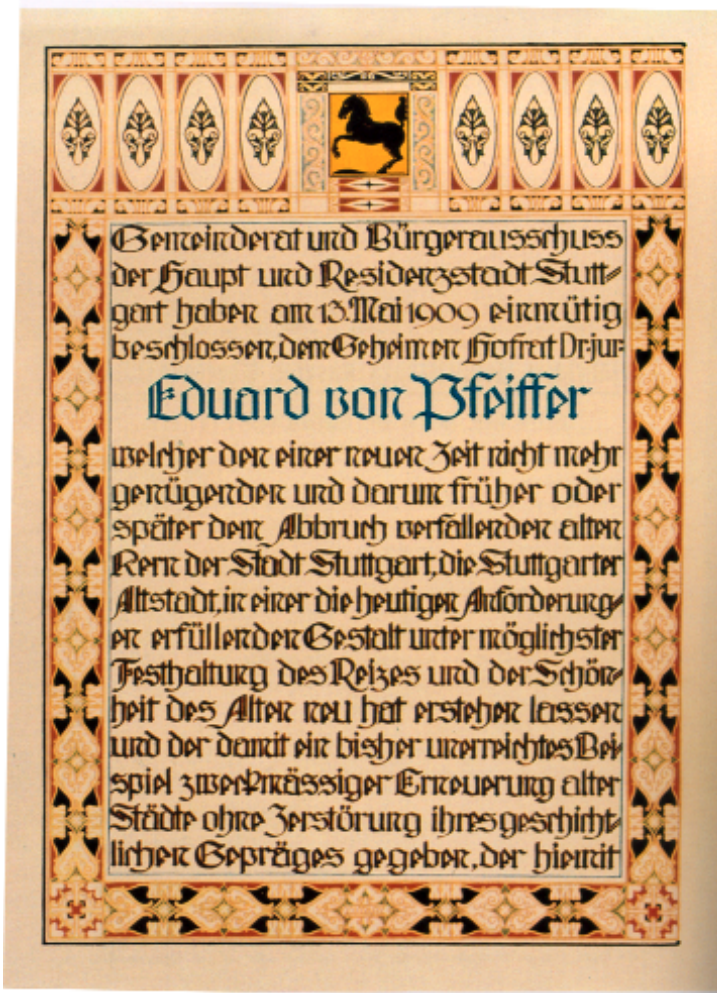 Gemeinderat und Bürgerausschuss
der Haupt und Residenzstadt Stutt-
gart haben am 13. Mai 1909 einmütig
beschlossen, dem Geheimen Hofrat Dr. jur.
Eduard von Pfeiffer
welcher den einer neuen Zeit nicht mehr
genügenden und darum früher oder
später dem Abbruch verfallenden alten
Kern der Stadt Stuttgart, die Stuttgarter
Altstadt, in einer die heutigen Anforderung-
en erfüllenden Gestalt unter möglichster
Festhaltung des Reizes und der Schön-
heit des Alten neu hat erstehen lassen
und der damit ein bisher unerreichtes Bei-
spiel zweckmässiger Erneuerung alter
Städte ohne Zerstörung ihres geschicht-
lichen Gepräges gegeben, der hiemit